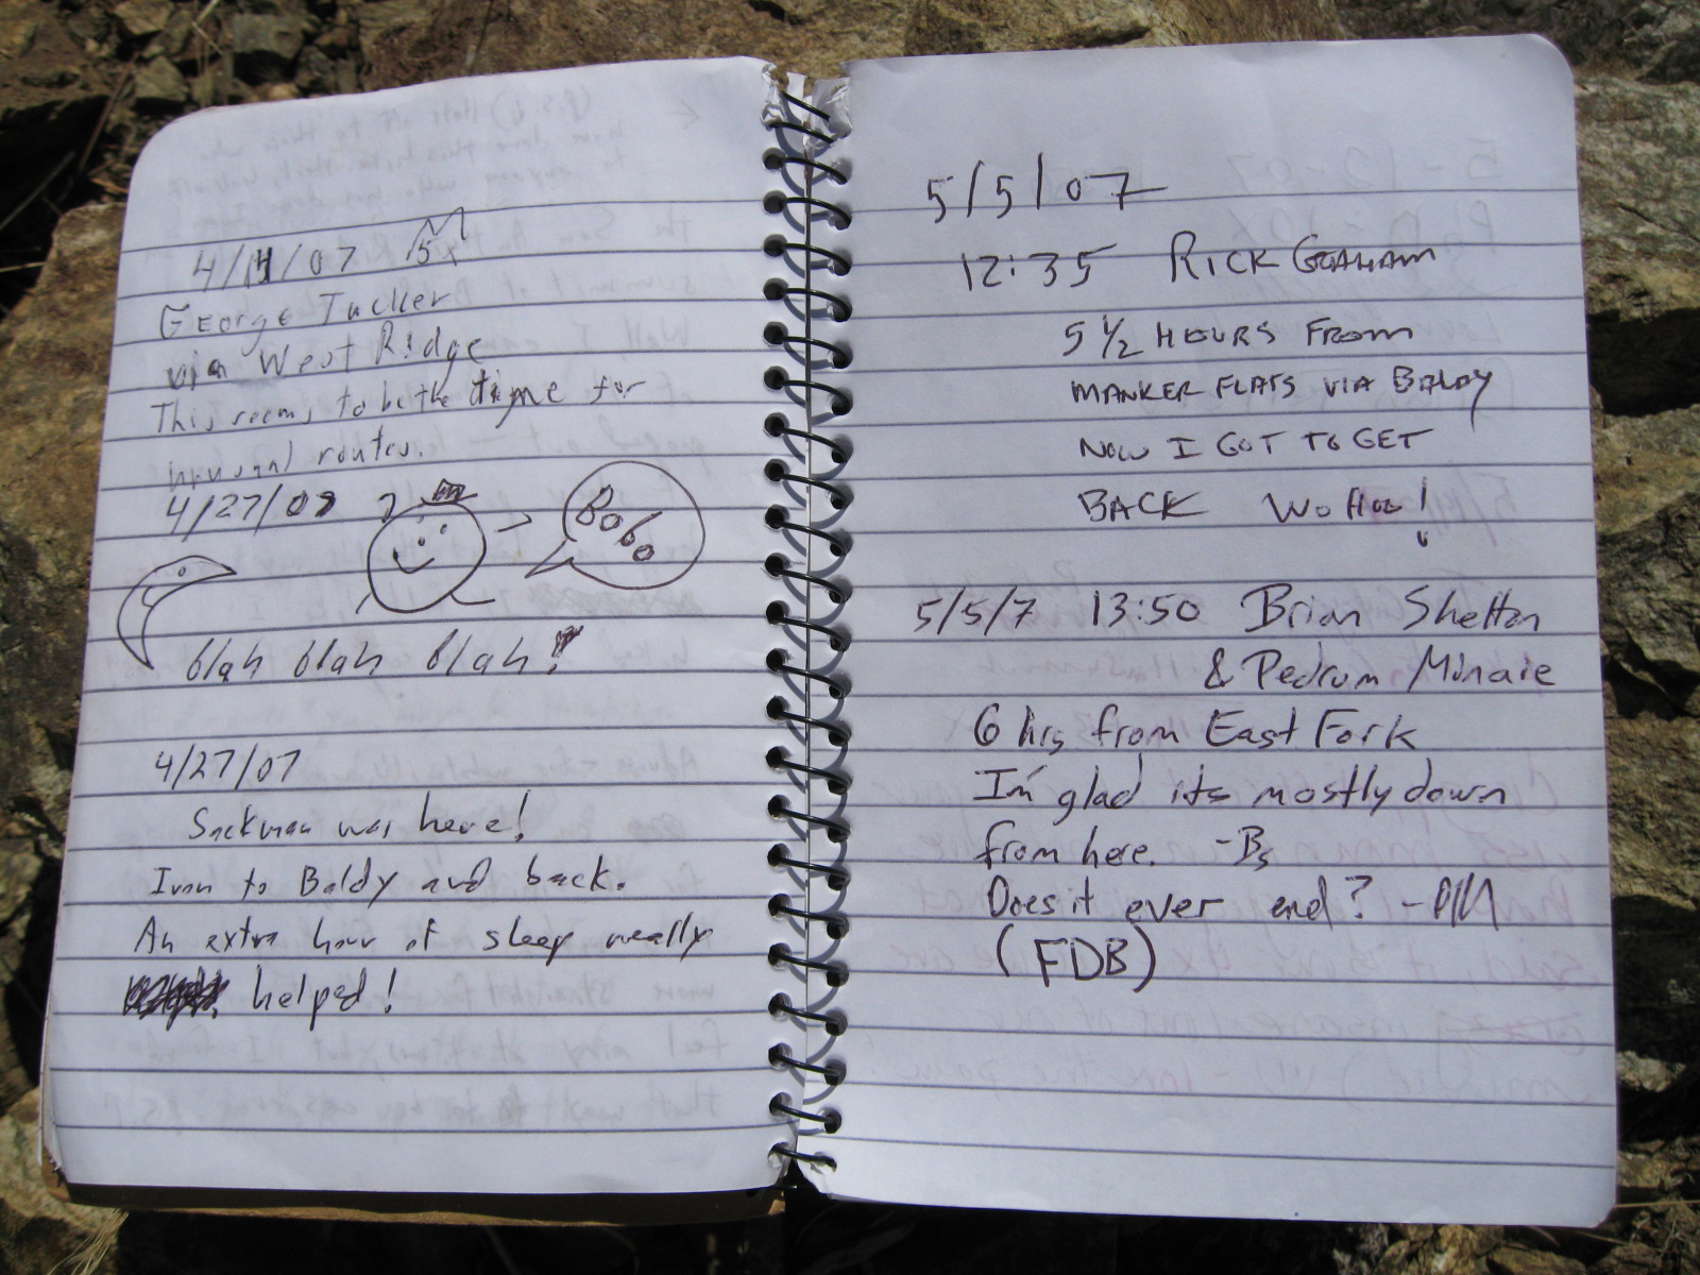 4/14/07 5x
George Tucker
via West Ridge
This seems to be the time for
unusual routes.
4/27/07
Bobo
blah blah blah!
4/27/07
Sackman was here!
Iron to Baldy and back.
An extra hour of sleep really
helped!
5/5/07
12:35 RICK GRAHAM
5 1/2 HOURS FROM
MANKER FLATS VIA BALDY
NOW I GOT TO GET
BACK WOHOO!
5/5/7 13:50 Brian Shelton
& Pedrum Minaie
6 hrs from East Fork
I'm glad its mostly down
from here. -Bs
Does it ever end? -PM
(FDB)